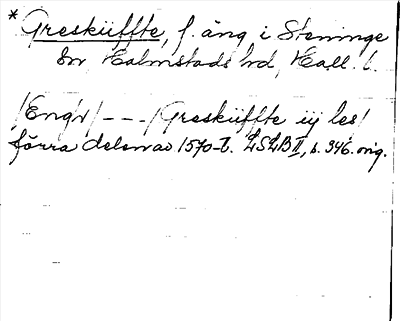 * Greskiiffte, f. äng i Steninge
sn Halmstads hd, Hall. l.
/Engr/ - - - /Greskiiffte iij les/
förra delen av 1570-t. LSLB II, s. 346. orig.